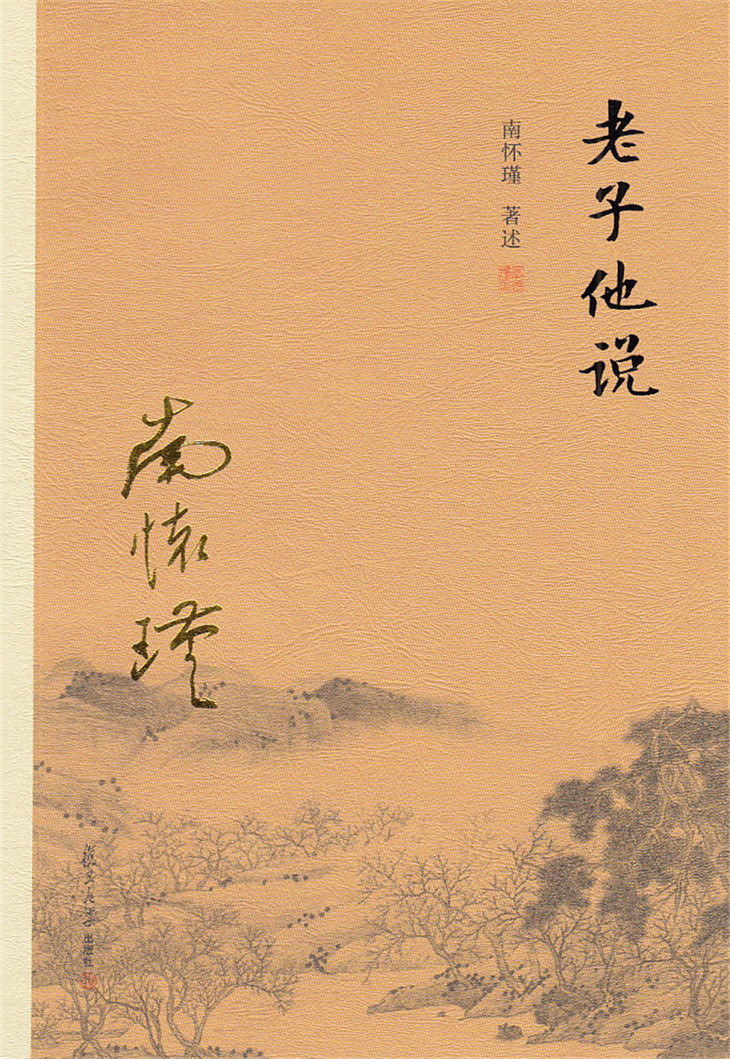 老子他说
南怀瑾 著述
南懷瑾
復旦大学出版社